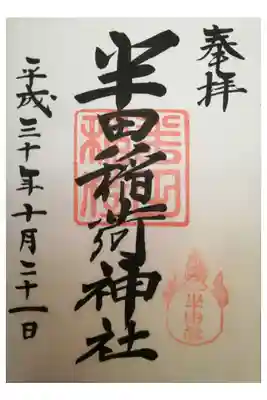 奉拝
半田稲荷神社
平成三十年十月二十一日